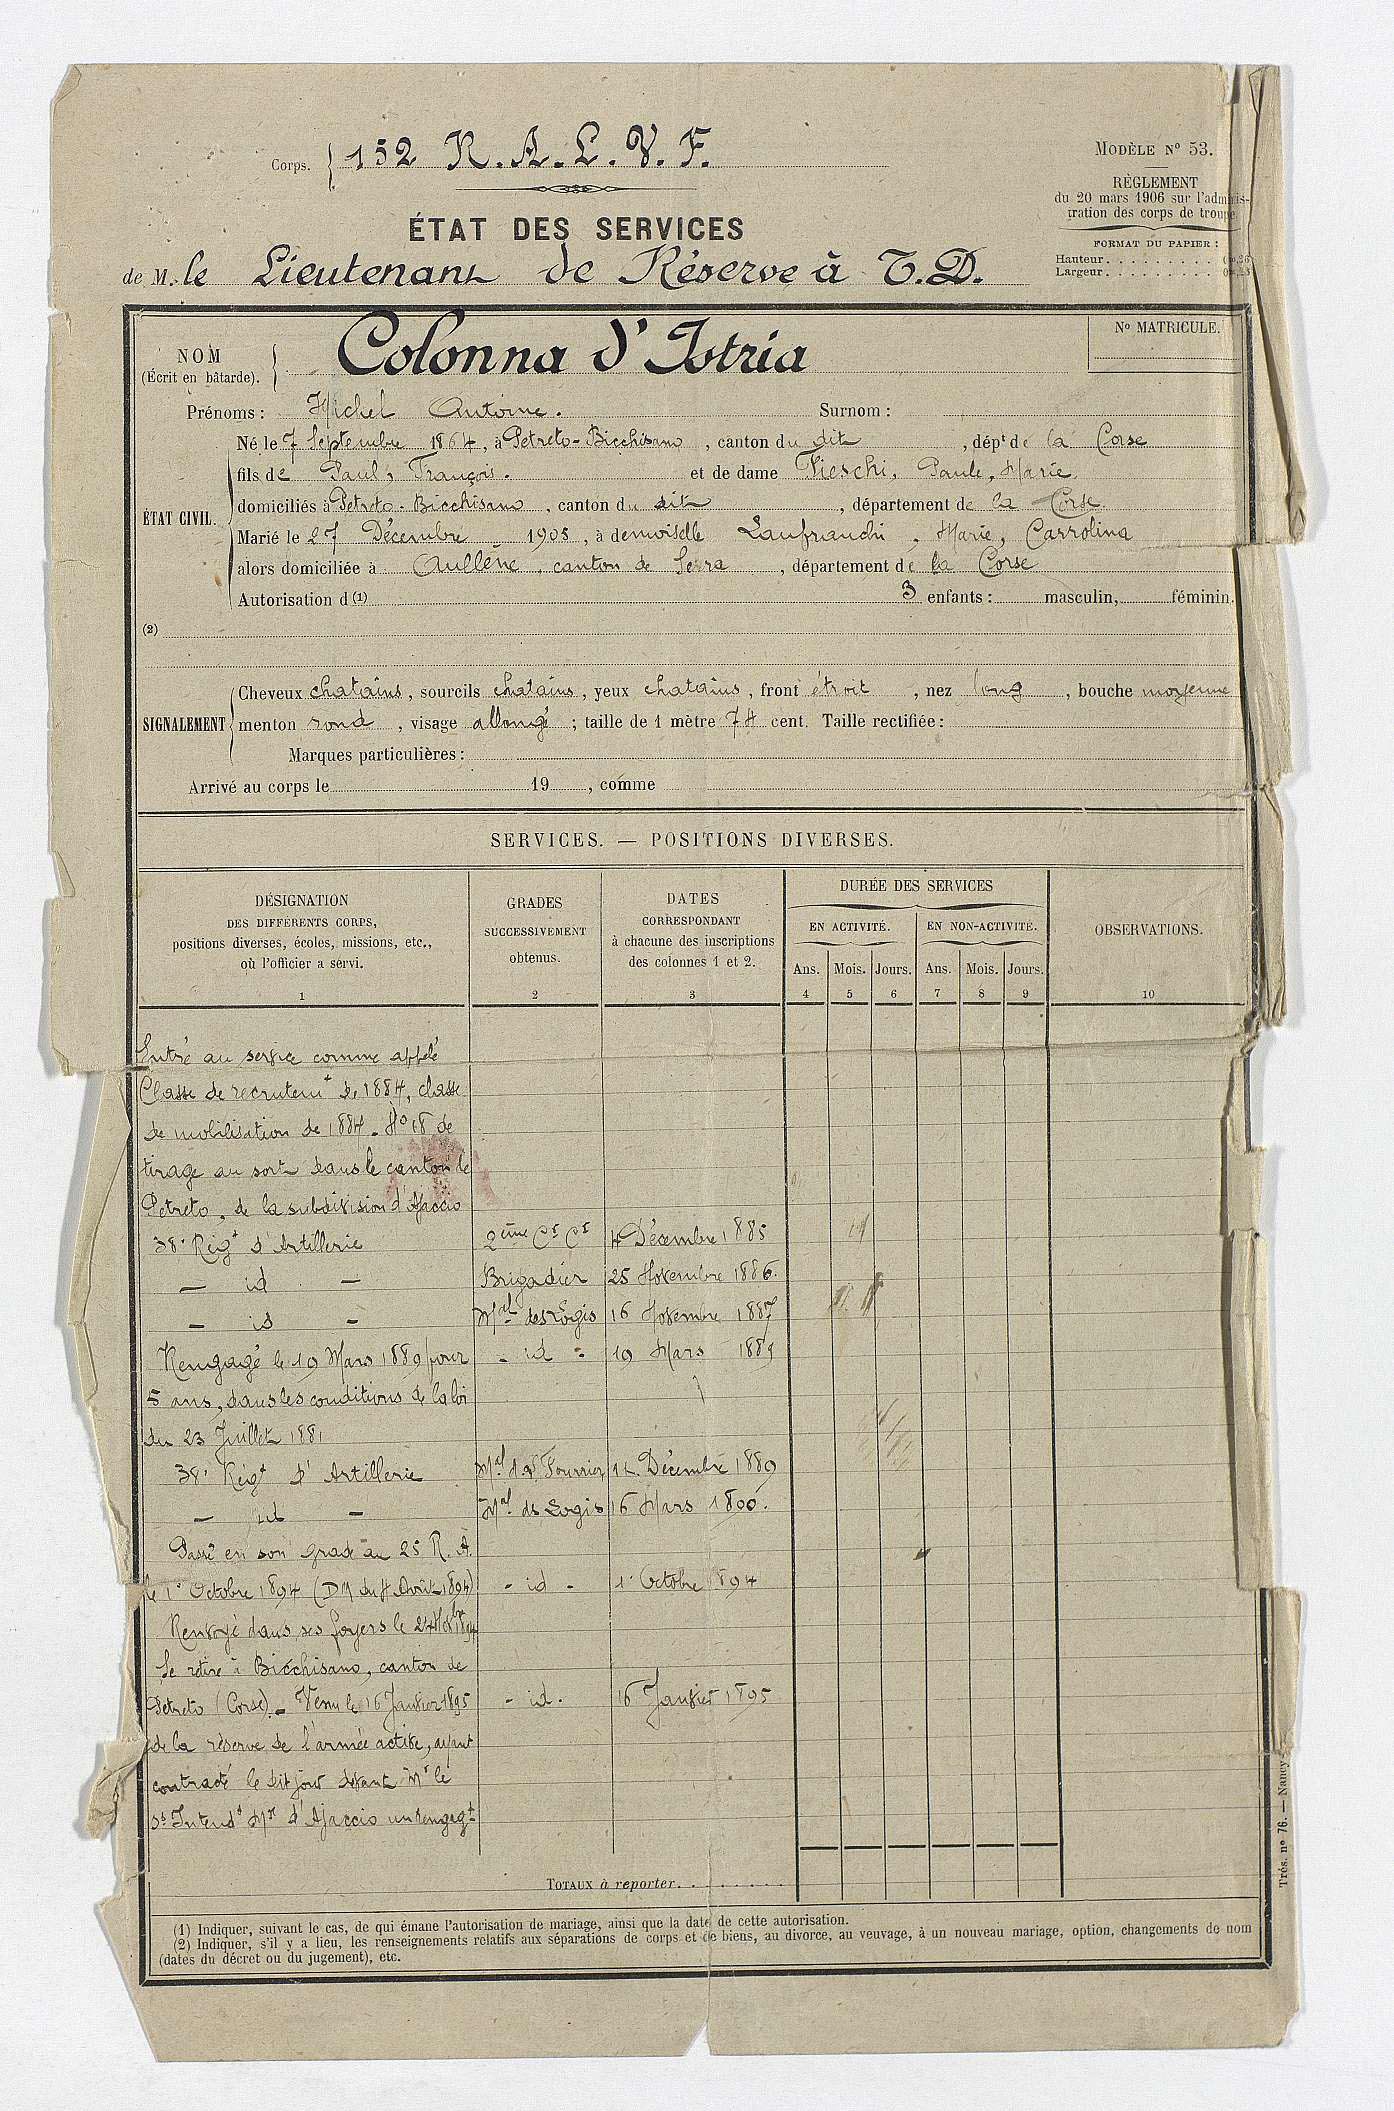 Corps. 152 R. A. L. V. F.
MODÈLE Nº 53.
RÈGLEMENT
du 20 mars 1906 sur l'adminis-
tration des corps de troupe
FORMAT DU PAPIER :
Hauteur. . . . . . . . . . 0m,26
Largeur. . . . . . . . . .
ÉTAT DES SERVICES
de M. le Lieutenant de Réserve à T.D.
NOM
(Écrit en bâtarde).
Colonna d'Istria
Nº MATRICULE.
Prénoms : Michel Antoine. Surnom :
ÉTAT CIVIL.
Né le 7 Septembre 1864, à Petreto-Bicchisano, canton du dit, dépt de la Corse
fils de Paul, François. et de dame Fieschi, Paule, Marie.
domiciliés à Petreto-Bicchisano, canton du dit, département de la Corse.
Marié le 27 Décembre 1905, à demoiselle Lanfranchi, Marie, Carrolina
alors domiciliée à Aullène, canton de Serra, département de la Corse
Autorisation d(1) 3 enfants : masculin, féminin.
(2)
SIGNALEMENT
Cheveux chatains, sourcils chatains, yeux chatains, front étroit, nez long, bouche moyenne
menton rond, visage allongé ; taille de 1 mètre 74 cent. Taille rectifiée :
Marques particulières :
Arrivé au corps le 19 , comme
SERVICES. — POSITIONS DIVERSES.
DÉSIGNATION
DES DIFFÉRENTS CORPS,
positions diverses, écoles, missions, etc.,
où l'officier a servi.
1
GRADES
SUCCESSIVEMENT
obtenus.
2
DATES
CORRESPONDANT
à chacune des inscriptions
des colonnes 1 et 2.
3
DURÉE DES SERVICES
EN ACTIVITÉ. EN NON-ACTIVITÉ.
Ans. Mois. Jours. Ans. Mois. Jours.
4 5 6 7 8 9
OBSERVATIONS.
10
Entré au service comme appelé
Classe de recrutemt de 1884, classe
de mobilisation de 1884. Nº 18 de
tirage au sort dans le canton de
Petreto, de la subdivision d'Ajaccio
38e Régt d'Artillerie 2ème Cr Cr 4 Décembre 1885
— id — Brigadier 25 Novembre 1886.
— id — Mal des Logis 16 Novembre 1887
Rengagé le 19 Mars 1889 pour - id - 19 Mars 1889
5 ans, dans les conditions de la loi
du 23 Juillet 1881
38e Régt d'Artillerie Mal d. L. Fourrier 12 Décembre 1889
— id — Mal ds Logis 16 Mars 1890.
Passé en son grade au 25 R. A.
le 1er Octobre 1894 (DM du 4 Avril 1894) - id - 1er Octobre 1894
Renvoyé dans ses foyers le 24 1894
Se retire à Bicchisano, canton de
Petreto (Corse). - Venu le 16 Janvier 1895 - id. 16 Janvier 1895
de la réserve de l'armée active, ayant
contracté le dit jour devant Mr le
Ss Intendt Mre d'Ajaccio un rengagt
TOTAUX à reporter. . . . . . . . .
(1) Indiquer, suivant le cas, de qui émane l'autorisation de mariage, ainsi que la date de cette autorisation.
(2) Indiquer, s'il y a lieu, les renseignements relatifs aux séparations de corps et de biens, au divorce, au veuvage, à un nouveau mariage, option, changements de nom
(dates du décret ou du jugement), etc.
Trés. nº 76. — Nancy